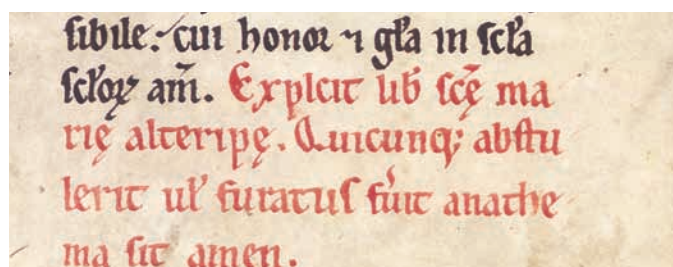 sibile. cui honor ⁊ gl̃a in scl̃a
scl̃oꝝ am̃. Explcit lib̃ sc̃ę ma
rię alteripę. Quicunq; abstu
lerit ul̃ furatus fu̾it anathe
ma sit amen.